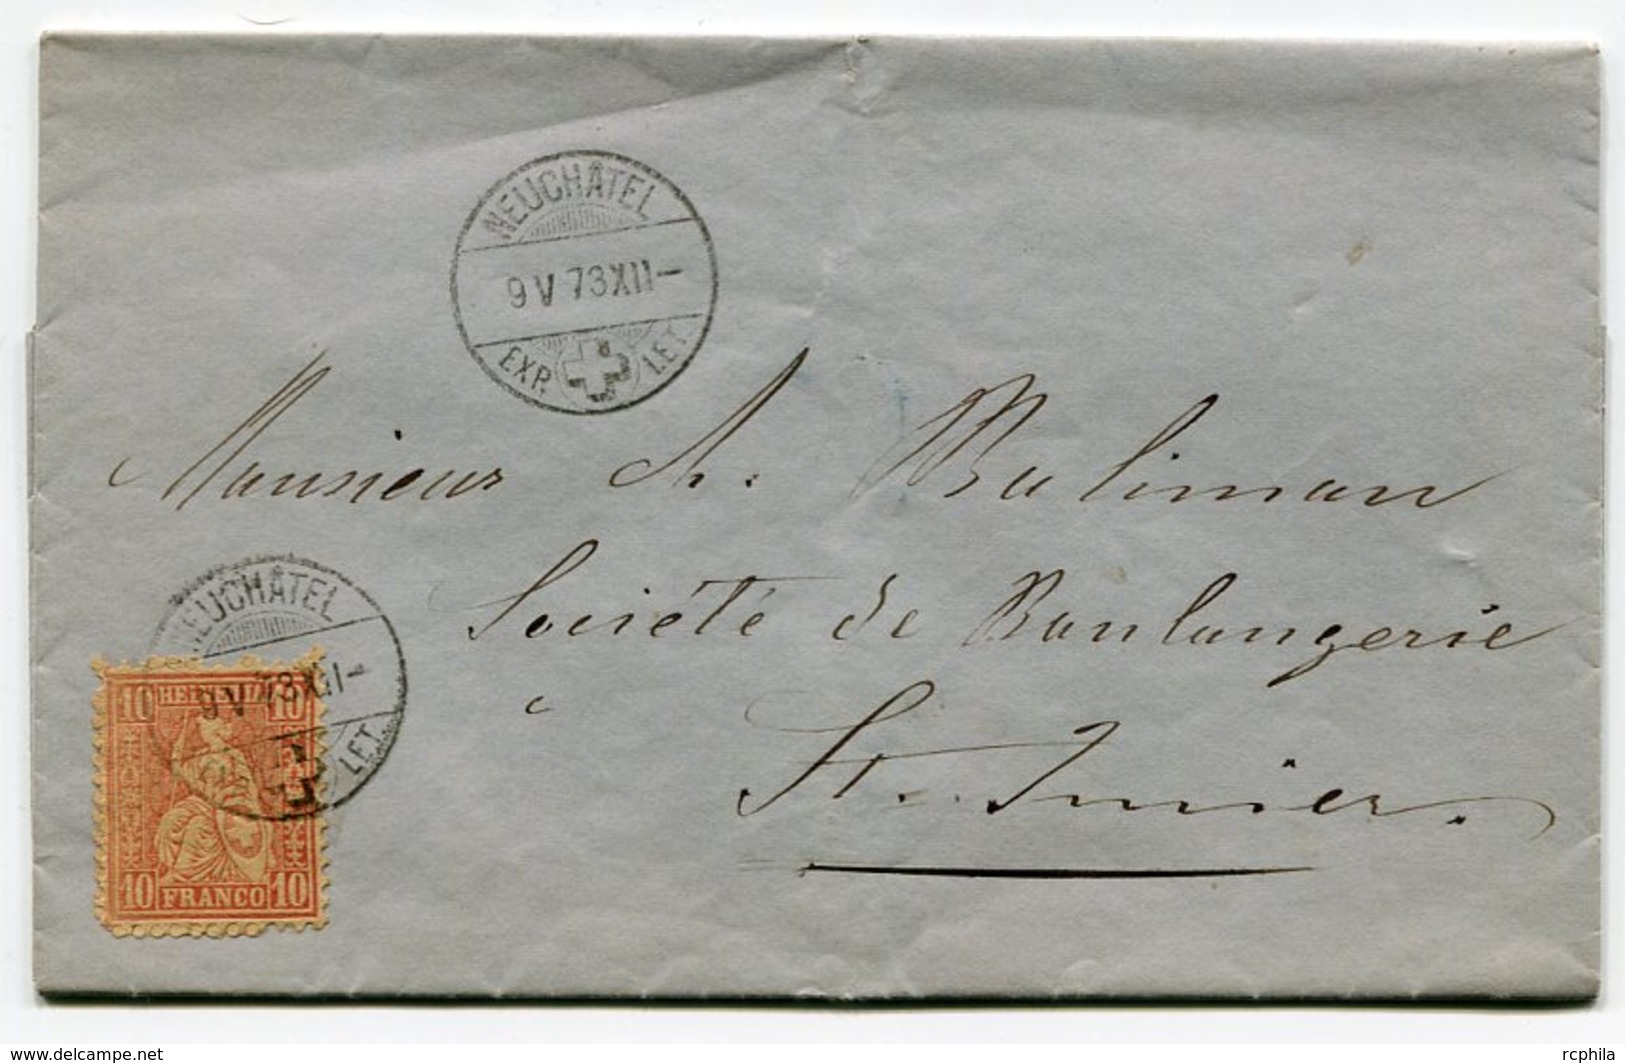 NEUCHÂTEL
9 V 73 XII–
EXP. LET.
Monsieur A. Baliman
Société de Boulangerie
à
St. Imier.
NEUCHÂTEL
9 V 73 XII–
LET.
10 HELVETIA 10
10 FRANCO 10
www.delcampe.net
rcphila